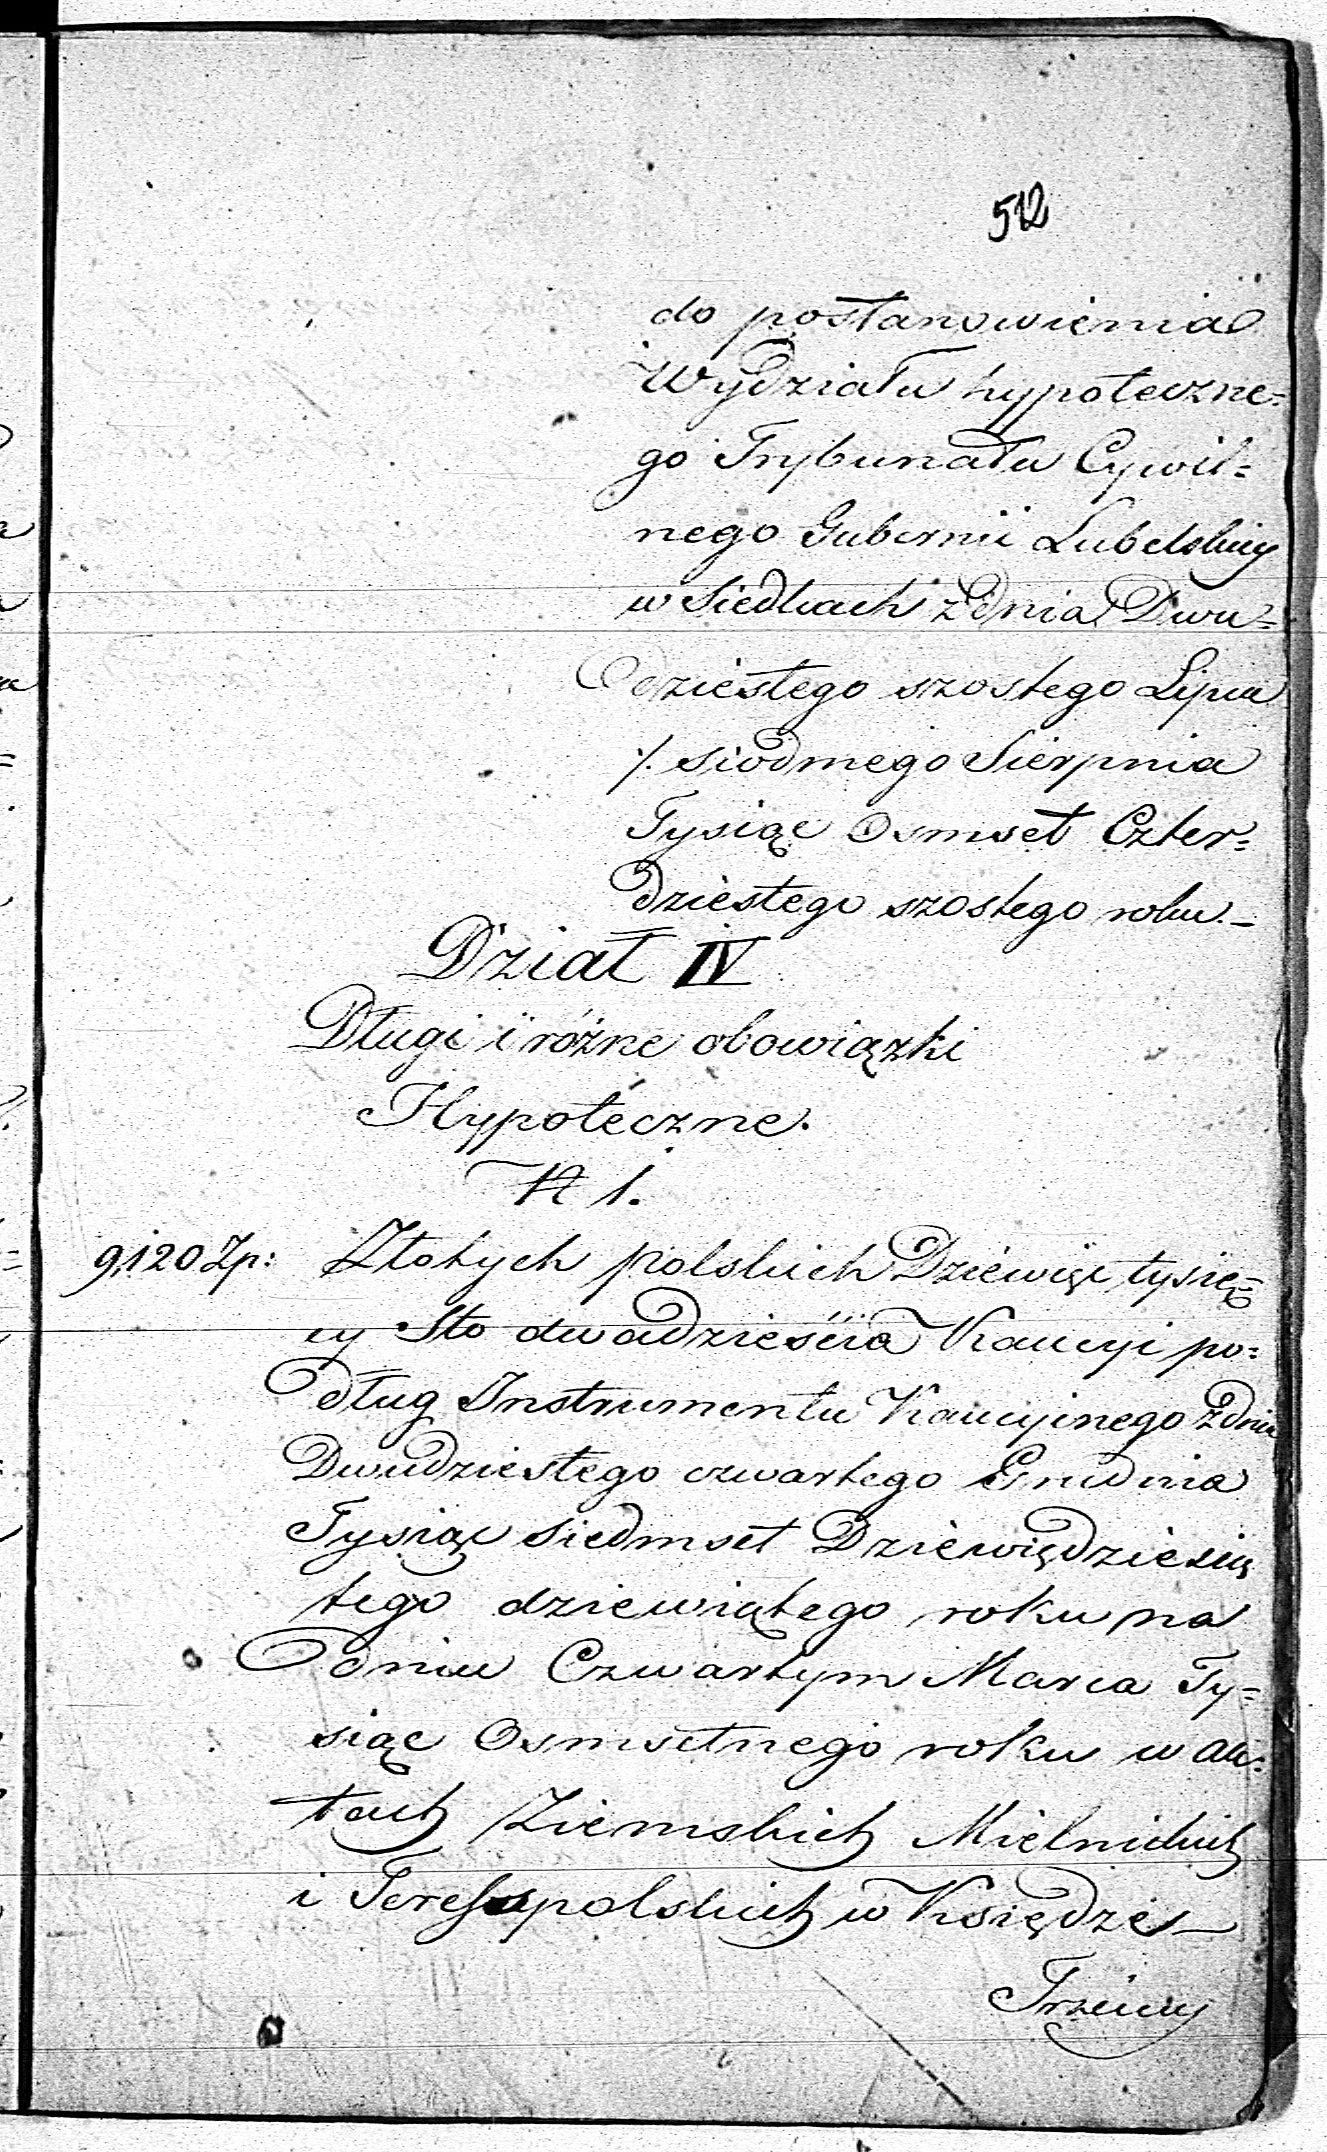 512
do postanowienia
Wydziału hypoteczne=
go Trybunału Cywil=
nego Gubernii Lubelskiey
w Siedlcach z dnia Dwu=
dziestego szostego Lipca
/. siodmego Sierpnia
Tysiąc Osmset Czter=
dziestego szostego roku.–
Dział IV
Długi i różne obowiązki
Hypoteczne.
N 1.
9,120 Zp: Złotych polskich Dziewięć tysię=
cy Sto dwadzieścia Kaucyi po=
dług Instrumentu Kaucyinego z dnia
Dwudziestego czwartego Grudnia
Tysiąc siedmset Dziewiędziesią
tego dziewiątego roku na
dniu Czwartym Marca Ty=
siąc Osmsetnego roku w Ak=
tach Ziemskich Mielnickich
i Terespolskich w Księdze –
Trzeciey